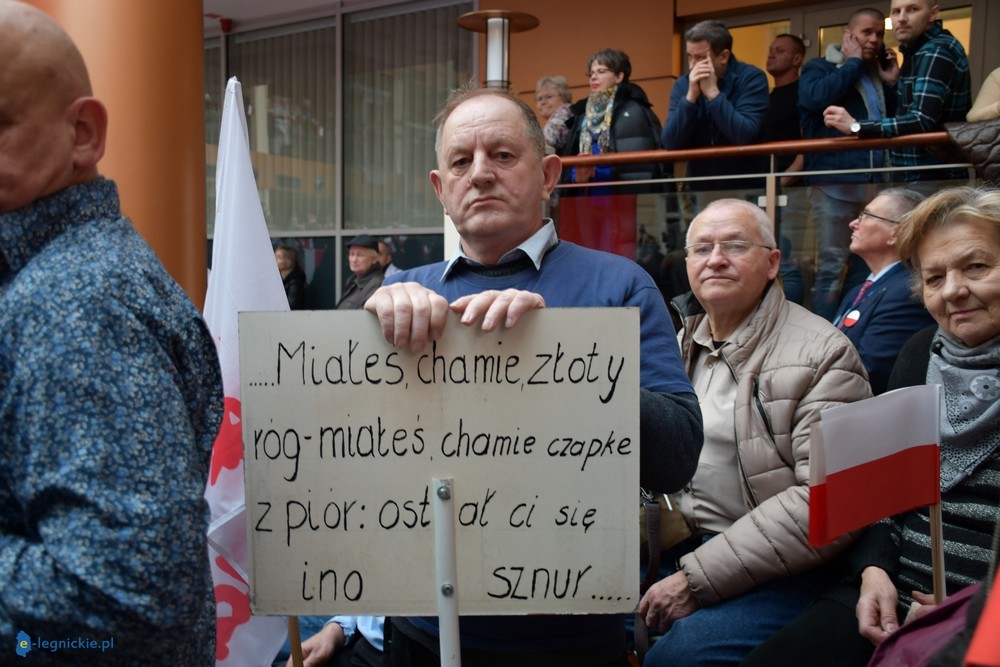 .....Miałeś, chamie, złoty
róg-miałeś, chamie czapke
z piór: ostał ci się
ino sznur.....
e-legnickie.pl